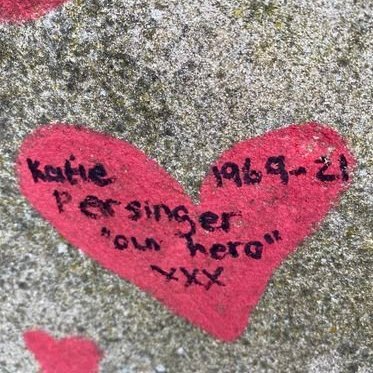 Katie 1969-21
Persinger
"our hero"
xxx